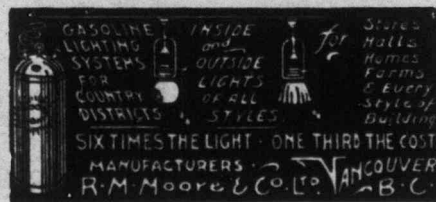 GASOLINE
LIGHTING
SYSTEMS
FOR
COUNTRY
DISTRICTS
INSIDE
and
OUTSIDE
LIGHTS
OF ALL
STYLES
for
Stores
Halls
Homes
Farms
& Every
Style of
Building
SIX TIMES THE LIGHT · ONE THIRD THE COST
MANUFACTURERS
R. M. Moore & Co. LTD. VANCOUVER B. C.